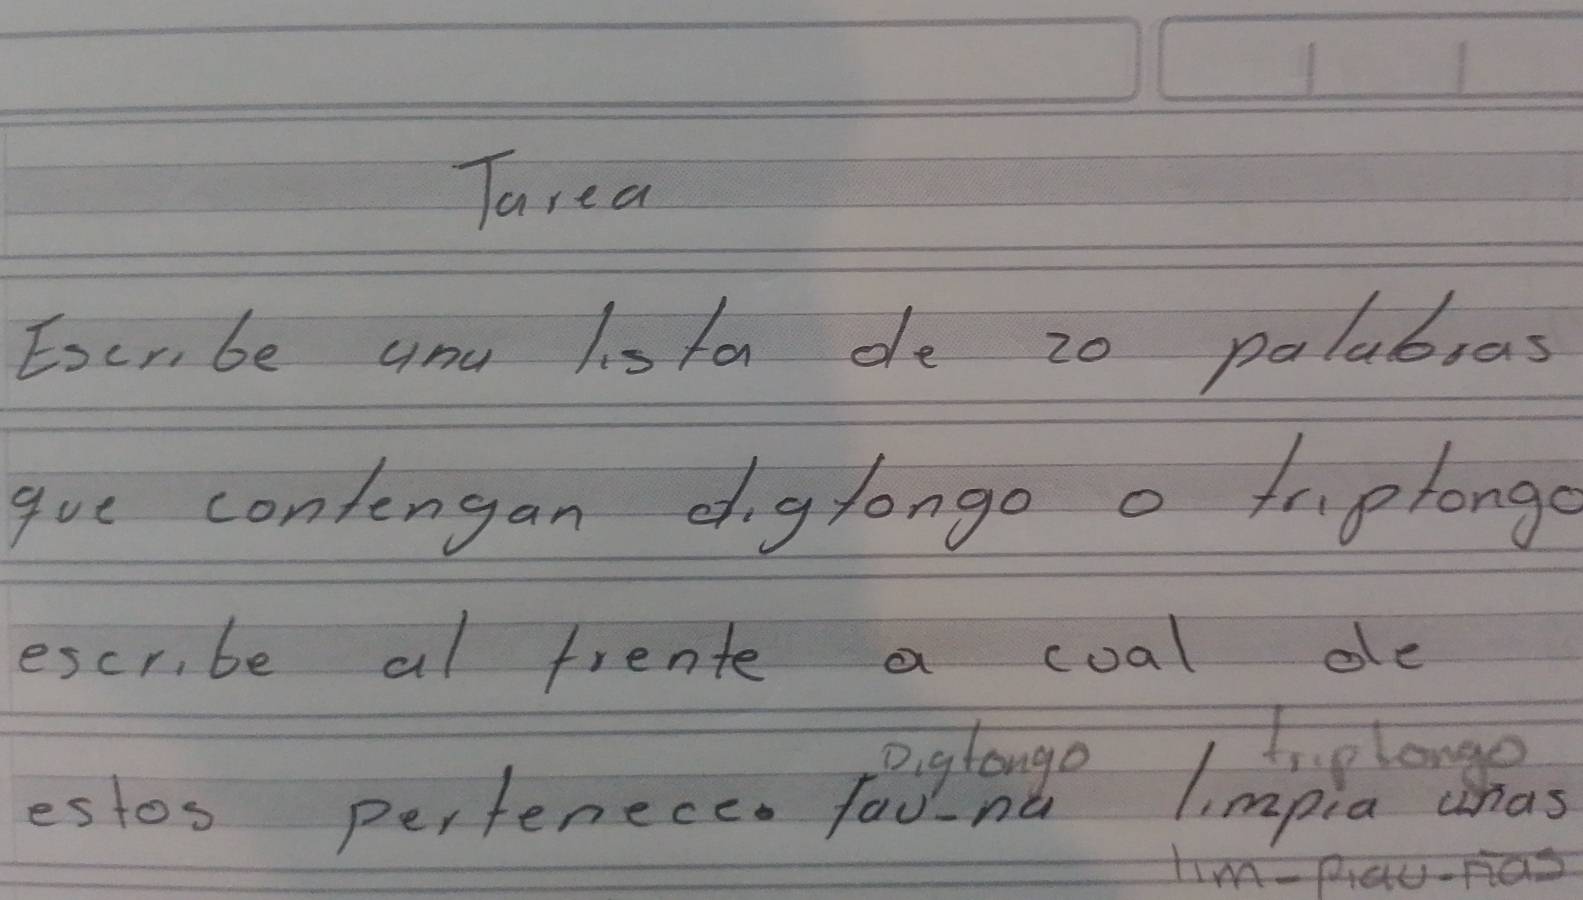 Tarea
Escribe una lista de 20 palabras
que contengan digtongo o triptongo
escribe al frente a cual de
Digtongo triptongo
estos pertenece. fau-na limpia uñas
lim-piau-ñas